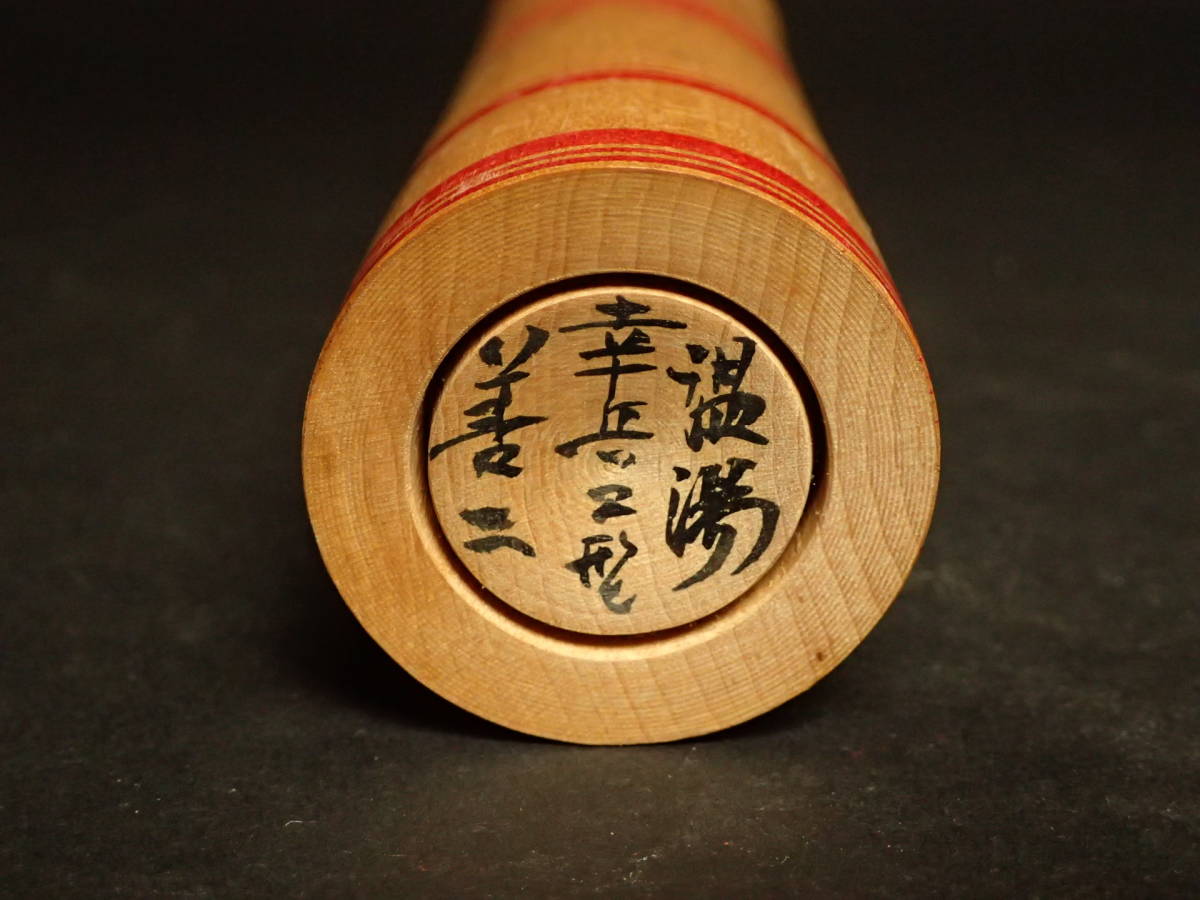 温湯
幸兵エ型
善二